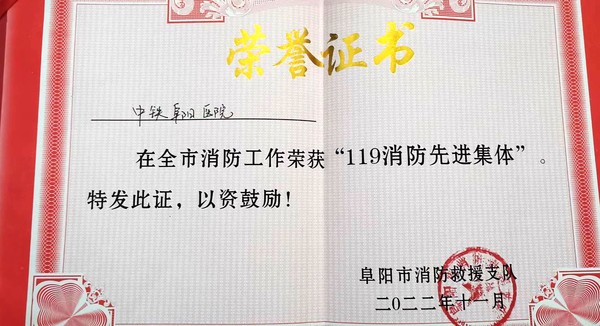 荣誉证书
中铁阜阳医院
在全市消防工作荣获“119消防先进集体”。
特发此证，以资鼓励！
阜阳市消防救援支队
二〇二二年十一月